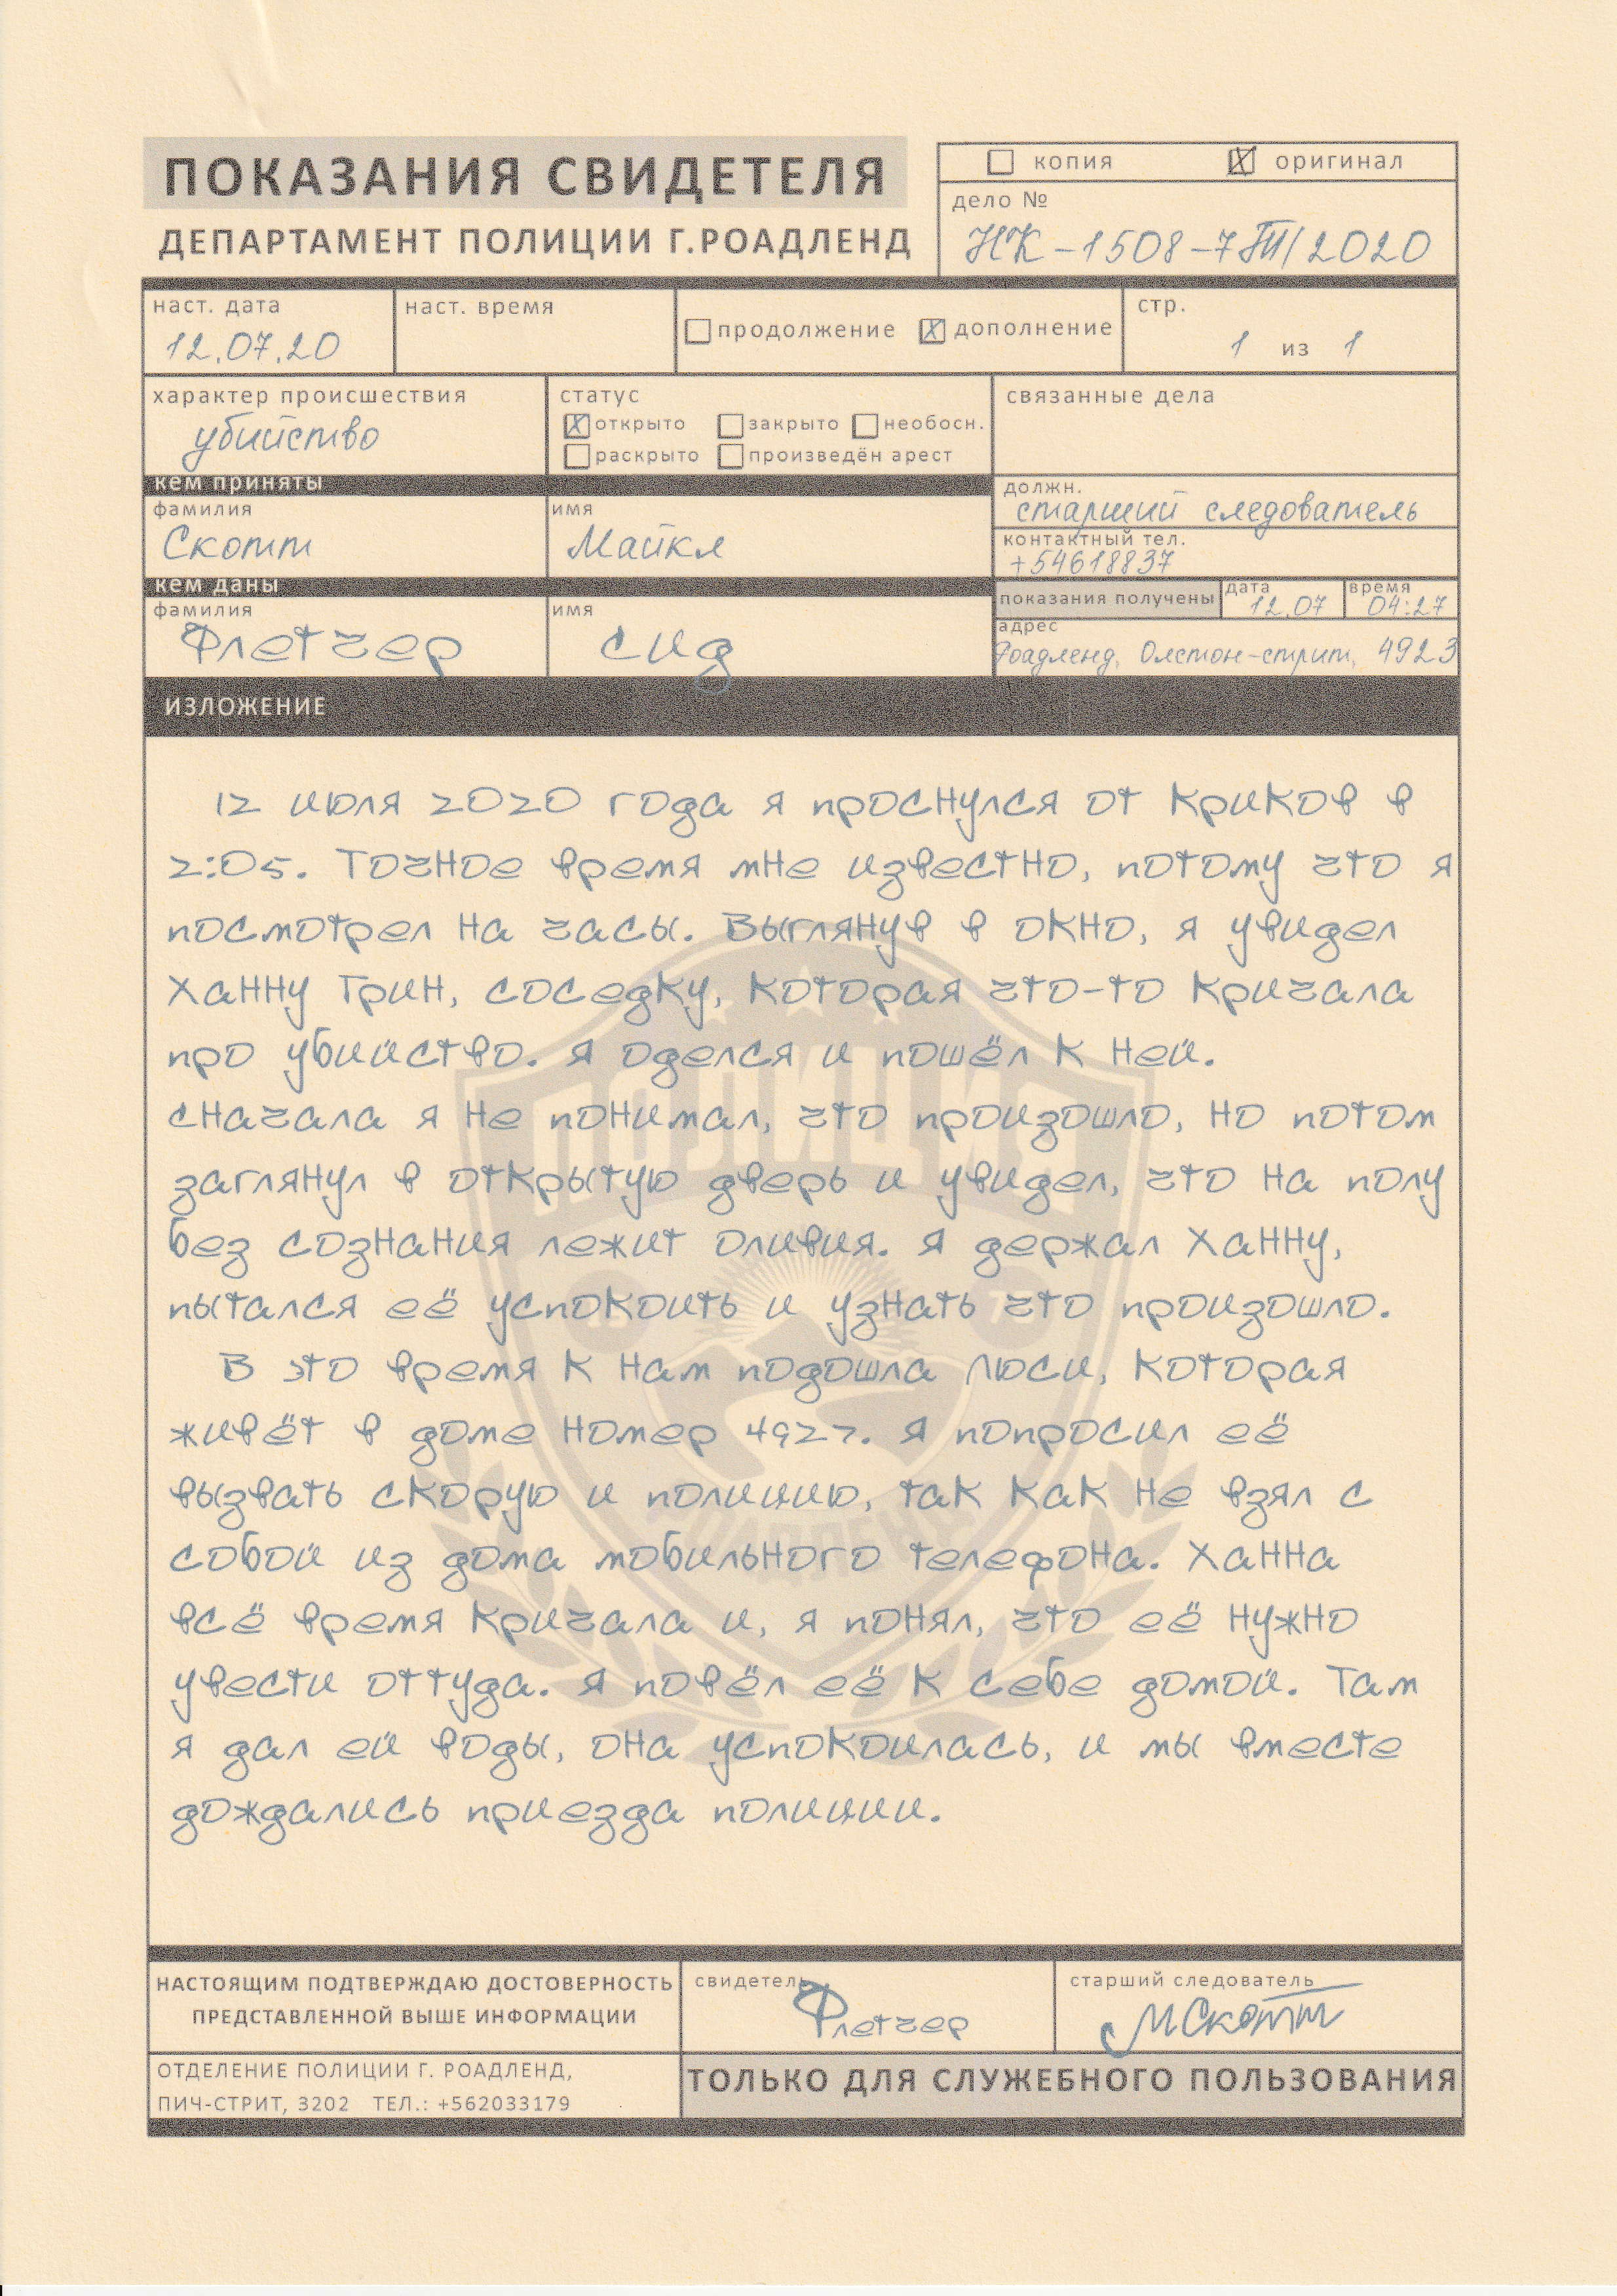 ПОКАЗАНИЯ СВИДЕТЕЛЯ
ДЕПАРТАМЕНТ ПОЛИЦИИ Г.РОАДЛЕНД
копия оригинал
дело №
НК-1508-7ГП/2020
наст. дата
12.07.20
наст. время
продолжение дополнение
стр.
1 из 1
характер происшествия
убийство
статус
открыто закрыто необосн.
раскрыто произведён арест
связанные дела
кем приняты
фамилия
Скотт
имя
Майкл
должн.
старший следователь
контактный тел.
+54618837
кем даны
фамилия
Флетчер
имя
Сид
показания получены
дата
12.07
время
04:27
адрес
Роадленд, Олстон-стрит, 4923
ИЗЛОЖЕНИЕ
12 июля 2020 года я проснулся от криков в
2:05. Точное время мне известно, потому что я
посмотрел на часы. Выглянув в окно, я увидел
Ханну Грин, соседку, которая что-то кричала
про убийство. Я оделся и пошёл к ней.
Сначала я не понимал, что произошло, но потом
заглянул в открытую дверь и увидел, что на полу
без сознания лежит Оливия. Я держал Ханну,
пытался её успокоить и узнать что произошло.
В это время к нам подошла Люси, которая
живёт в доме номер 4927. Я попросил её
вызвать скорую и полицию, так как не взял с
собой из дома мобильного телефона. Ханна
всё время кричала и, я понял, что её нужно
увести оттуда. Я повёл её к себе домой. Там
я дал ей воды, она успокоилась, и мы вместе
дождались приезда полиции.
ПОЛИЦИЯ
РОАДЛЕНД
НАСТОЯЩИМ ПОДТВЕРЖДАЮ ДОСТОВЕРНОСТЬ
ПРЕДСТАВЛЕННОЙ ВЫШЕ ИНФОРМАЦИИ
свидетель
Флетчер
старший следователь
МСкотт
ОТДЕЛЕНИЕ ПОЛИЦИИ Г. РОАДЛЕНД,
ПИЧ-СТРИТ, 3202 ТЕЛ.: +562033179
ТОЛЬКО ДЛЯ СЛУЖЕБНОГО ПОЛЬЗОВАНИЯ